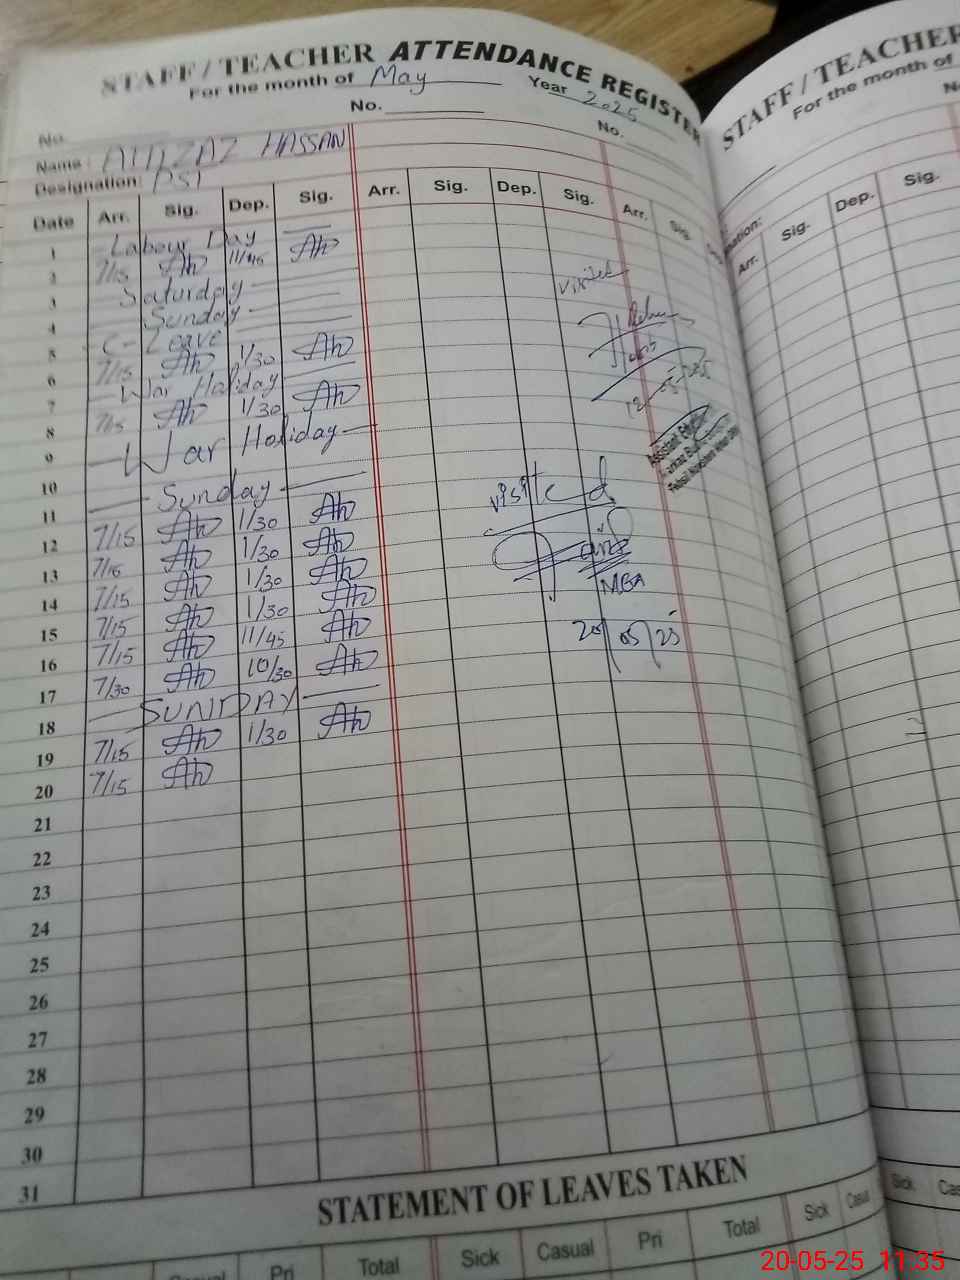 STAFF / TEACHER ATTENDANCE REGISTER
For the month of May Year 2025
No. No. No.
Name : AITIZAZ HASSAN
Designation: PST
Date Arr. Sig. Dep. Sig. Arr. Sig. Dep. Sig. Arr. Sig.
1 Labour Day
2 7/15 Ah 11/45 Ah
3 Saturday
4 Sunday
5 C-Leave
6 7/15 Ah 1/30 Ah
7 War Holiday
8 7/15 Ah 1/30 Ah
9 War Holiday
10
11 Sunday
12 7/15 Ah 1/30 Ah
13 7/16 Ah 1/30 Ah
14 7/15 Ah 1/30 Ah
15 7/15 Ah 1/30 Ah
16 7/15 Ah 11/45 Ah
17 7/30 Ah 10/30 Ah
18 SUNDAY
19 7/15 Ah 1/30 Ah
20 7/15 Ah
21
22
23
24
25
26
27
28
29
30
31
visited
Assistant
visited
MEA
20/05/25
STATEMENT OF LEAVES TAKEN
Casual Pri Total Sick Casual Pri Total Sick Casual
STAFF / TEACHER
For the month of
Arr. Sig. Dep. Sig.
Sick
20-05-25 11:35